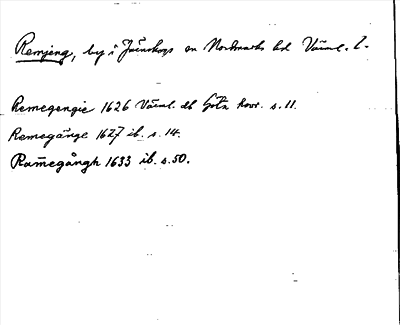 Remjeng, by i Järnskogs sn Nordmarks hd Värml. l.
Remegengie 1626 Värml. db Göta hovr. s. 11.
Remegänge 1627 ib. s. 14.
Ramegångh 1633 ib. s. 50.